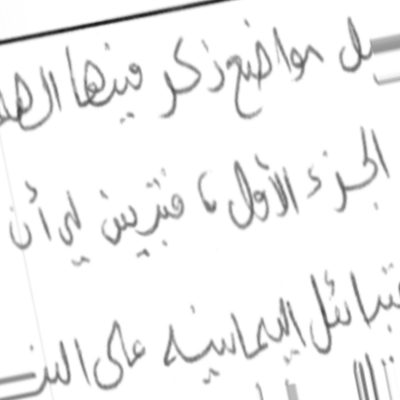 بل مواضع ذكر فيها الـ
الجزء الأول، فتبين لي أن
قبائل اليمانية على